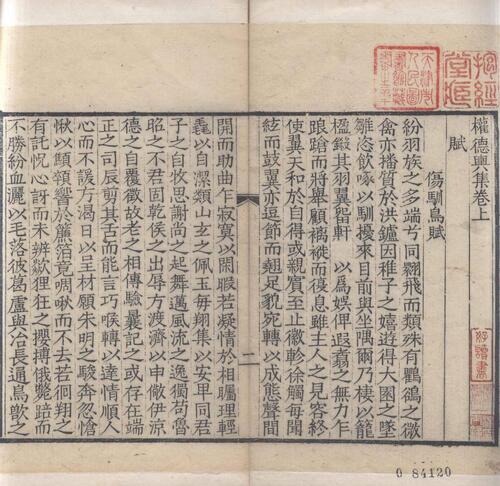 權德輿集卷上
賦
傷馴鳥賦
紛羽族之多端兮同翾飛而類殊有鸜鵒之微
禽亦播質於洪鑪因稚子之嬉遊得大囷之墜
雛恣飲啄以馴擾來目前與坐隅爾乃棲以籠
楹鎩其羽翼畱軒 以爲娛俾遐翥之無力乍
踉蹌而將舉顧褵褷而復息雖主人之見容終
使翼天和於自得或親賓至止徽軫徐觸每聞
絃而鼓翼亦逗節而翹足貌宛轉以成態聲閒
二
開而助曲乍寂寞以閑暇若凝情於相矚理輕
毳以自潔類山玄之佩玉每翔集以安卑同君
子之自牧思謝尚之起舞邁風流之逸獨茍魯
昭之不君固乾侯之出辱方渡濟以申儆伊涼
德之召覆徵故老之相傳驗曩記之或存在端
正之司辰剪其舌而能言巧喉轉以達情順人
心而不諼方渴日以呈材願朱明之駿奔忽愴
愀以顛頓響於簾箔竟啁啾而不去若徊翔之
有託怳心訝而未辨歘狸狂之攖搏俄斃踣而
不勝紛血灑以毛落彼葛盧與冶長通鳥獸之
抱經
堂
天津市
人民圖
書館藏
好讀書
0 84120